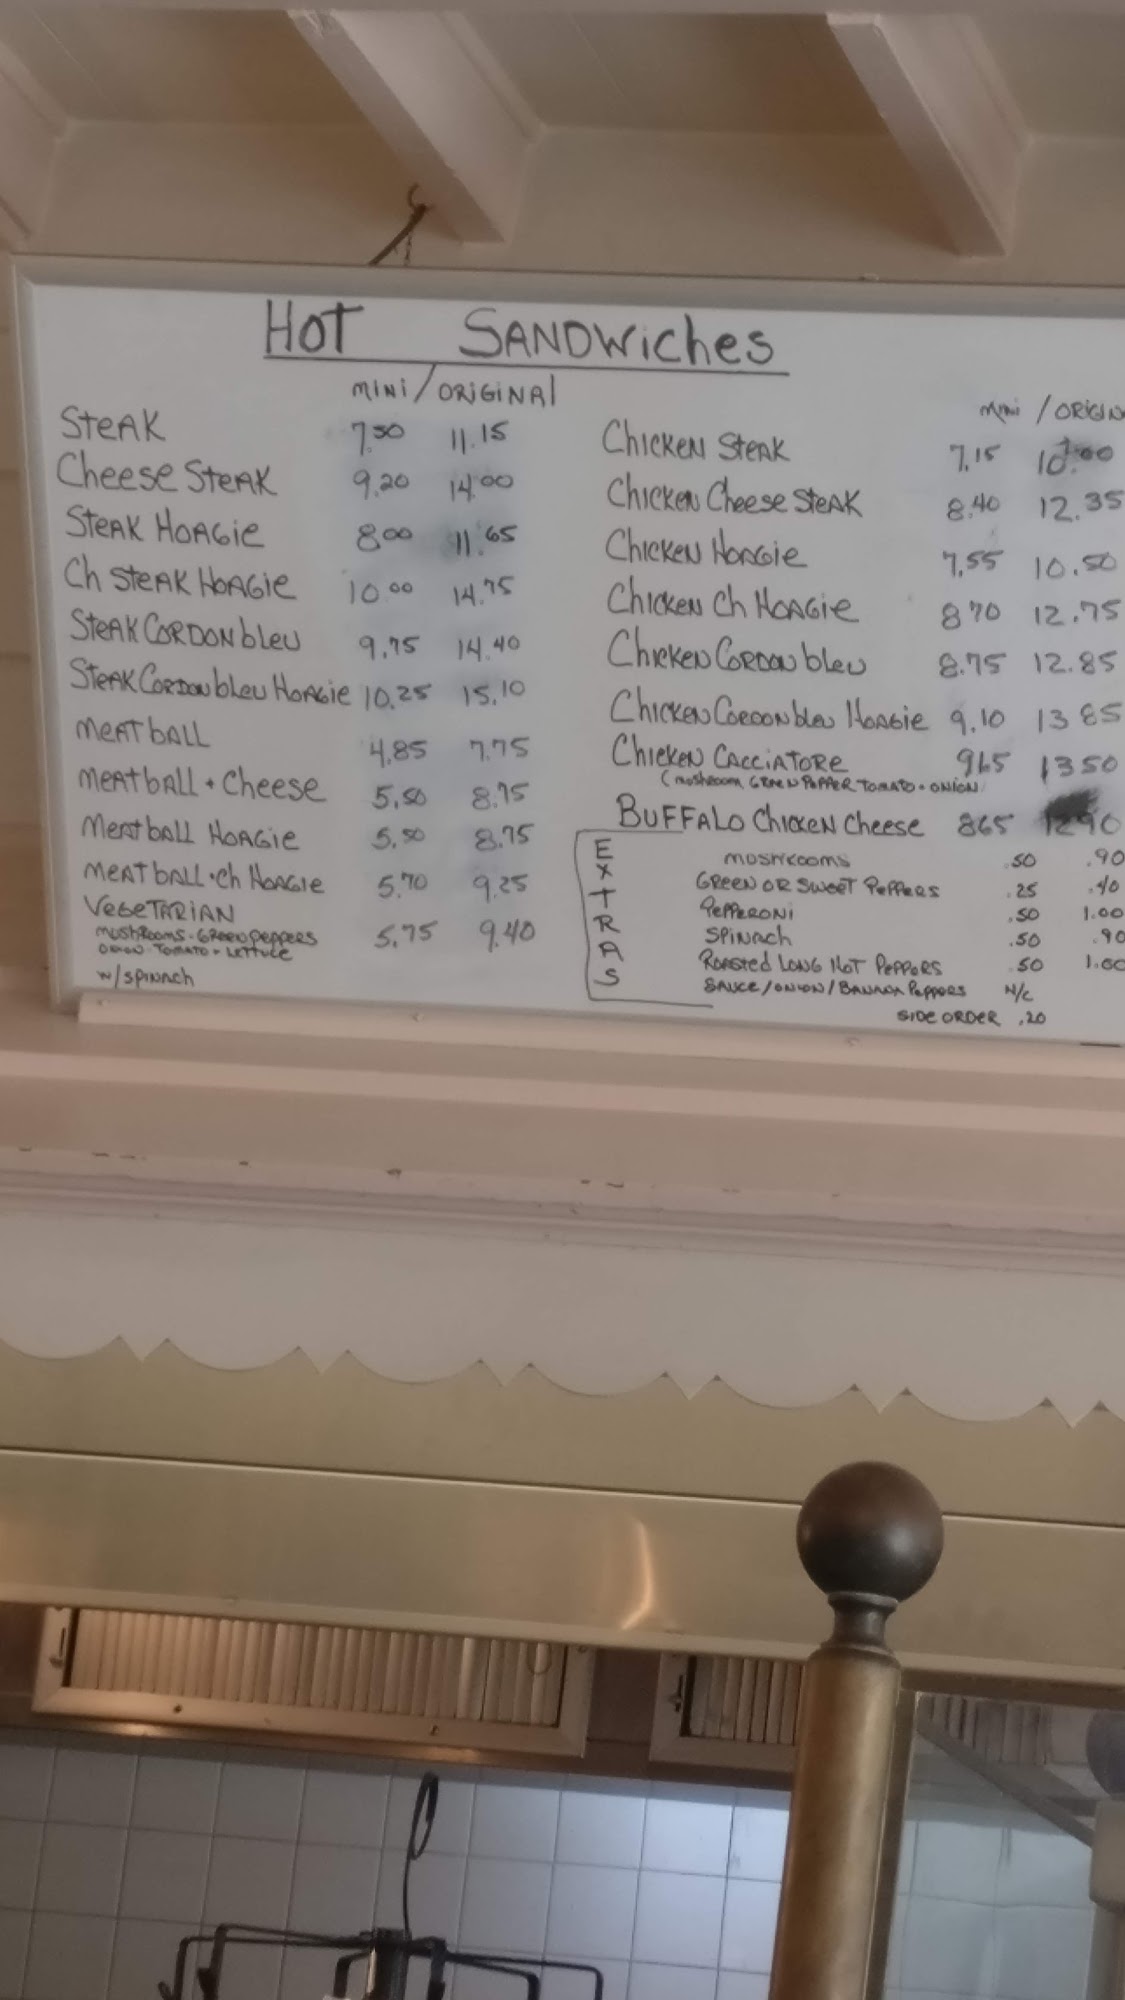 Hot SANDWiches
MINI / ORIGINAL
STEAK 7.50 11.15
Cheese STEAK 9.20 14.00
STEAK HOAGIE 8.00 11.65
Ch STEAK HOAGIE 10.00 14.75
STEAK CORDON bleu 9.75 14.40
STEAK CORDON bleu HOAGIE 10.25 15.10
MEATBALL 4.85 7.75
MEATBALL + Cheese 5.50 8.75
MEATBALL HOAGIE 5.50 8.75
MEATBALL + Ch HOAGIE 5.70 9.25
VEGETARIAN
MUSHROOMS - GREEN PEPPERS 5.75 9.40
ONION - TOMATO + LETTUCE
W/SPINACH
MINI / ORIGIN
Chicken STEAK 7.15 10.00
Chicken Cheese STEAK 8.40 12.35
Chicken HOAGIE 7.55 10.50
Chicken Ch HOAGIE 8 70 12.75
Chicken CORDON bleu 8.75 12.85
Chicken CORDON bleu HOAGIE 9.10 13 85
Chicken CACCIATORE 965 13 50
(MUSHROOM, GREEN PEPPER TOMATO + ONION
BUFFALO Chicken Cheese 865 1290
EXTRAS
MUSHROOMS .50 .90
GREEN OR SWEET PEPPERS .25 .40
PEPPERONI .50 1.00
SPINACH .50 .90
ROASTED LONG HOT PEPPERS .50 1.00
SAUCE/ONION/BANANA PEPPERS N/C
SIDE ORDER .20